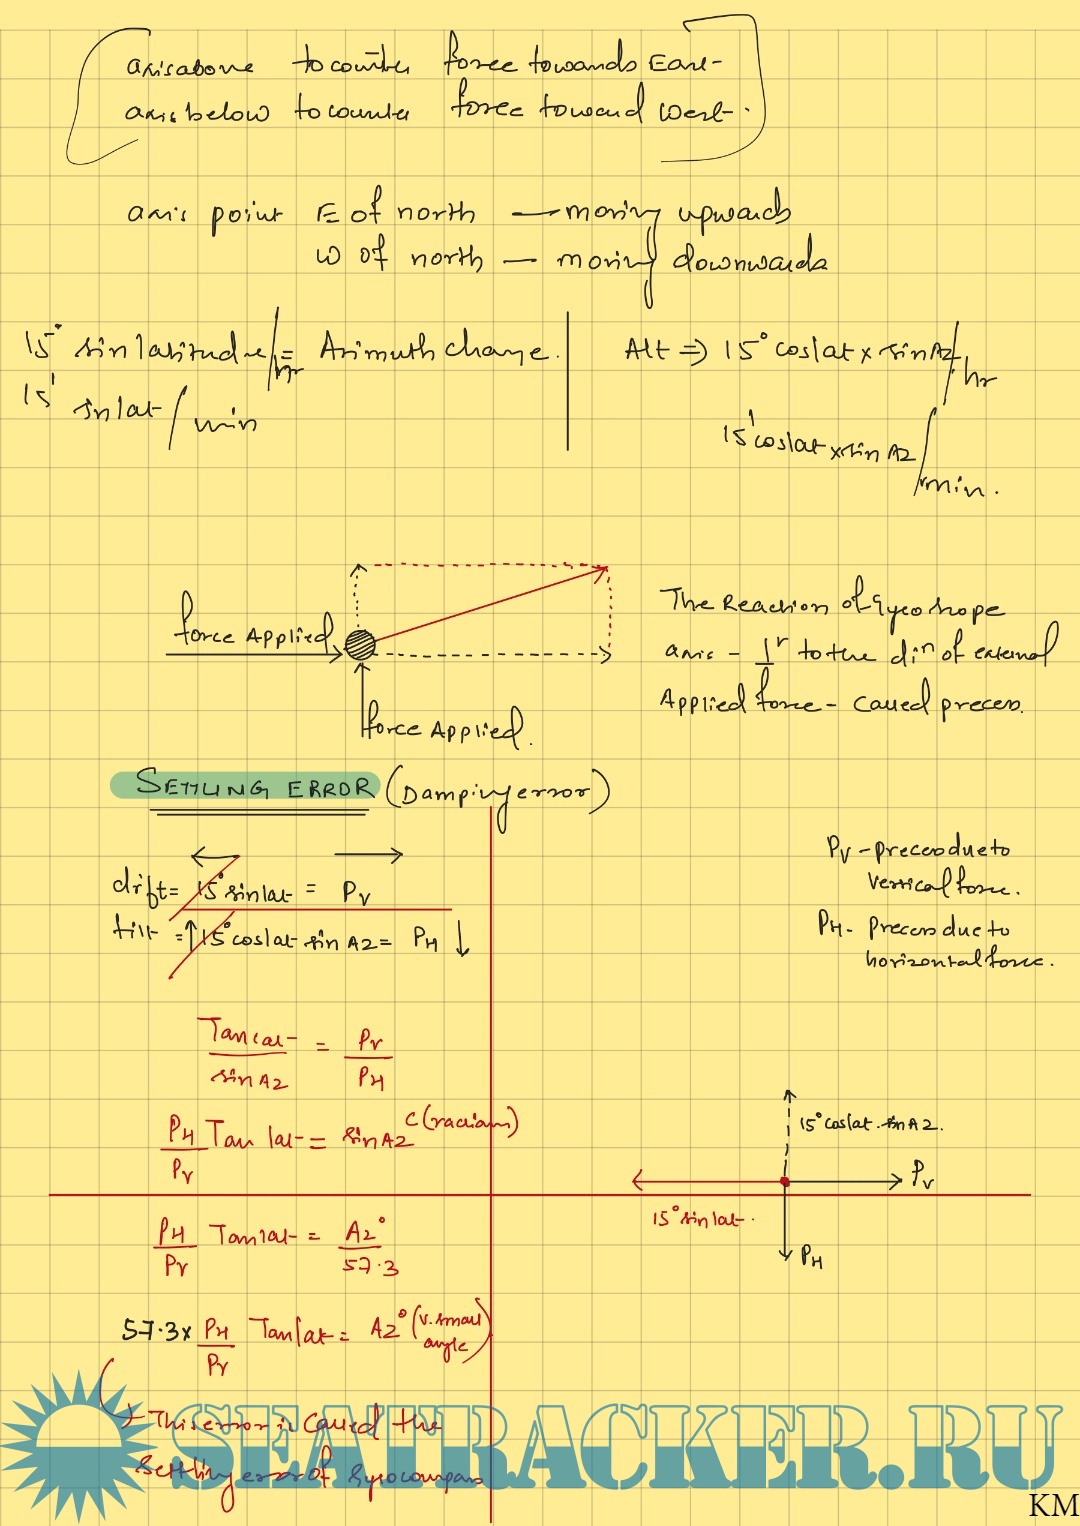 axis above to counter force towards East
axis below to counter force toward West.
axis point E of north — moving upwards
W of north — moving downwards
15° sin latitude/hr = Azimuth change.
15' sin lat / min
Alt ⇒ 15° cos lat x sin AZ/hr
15' cos lat x sin AZ/min.
Force Applied
force Applied.
The Reaction of Gyroscope
axis - ⊥r to the dirn of external
Applied force - Called precess.
SETTLING ERROR (Damping error)
drift = 15° sin lat = PV
tilt = ↑15° cos lat sin AZ = PH ↓
PV - precess due to
vertical force.
PH - Precess due to
horizontal force.
Tan lat / sin AZ = PV / PH
PH / PV Tan lat = sin AZ c (radians)
15° cos lat. sin AZ.
PV
15° sin lat.
PH
PH / PV Tan lat = AZ° / 57.3
57.3 x PH / PV Tan lat = AZ° (V. small angle)
This error is Called the
Settling error of Gyrocompass
SEATRACKER.RU
KM